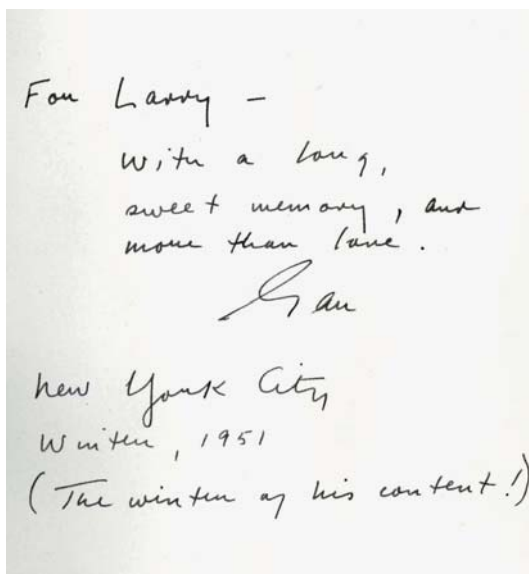 For Larry –
with a long,
sweet memory, and
more than love.
New York City
Winter, 1951
(The winter of his content!)